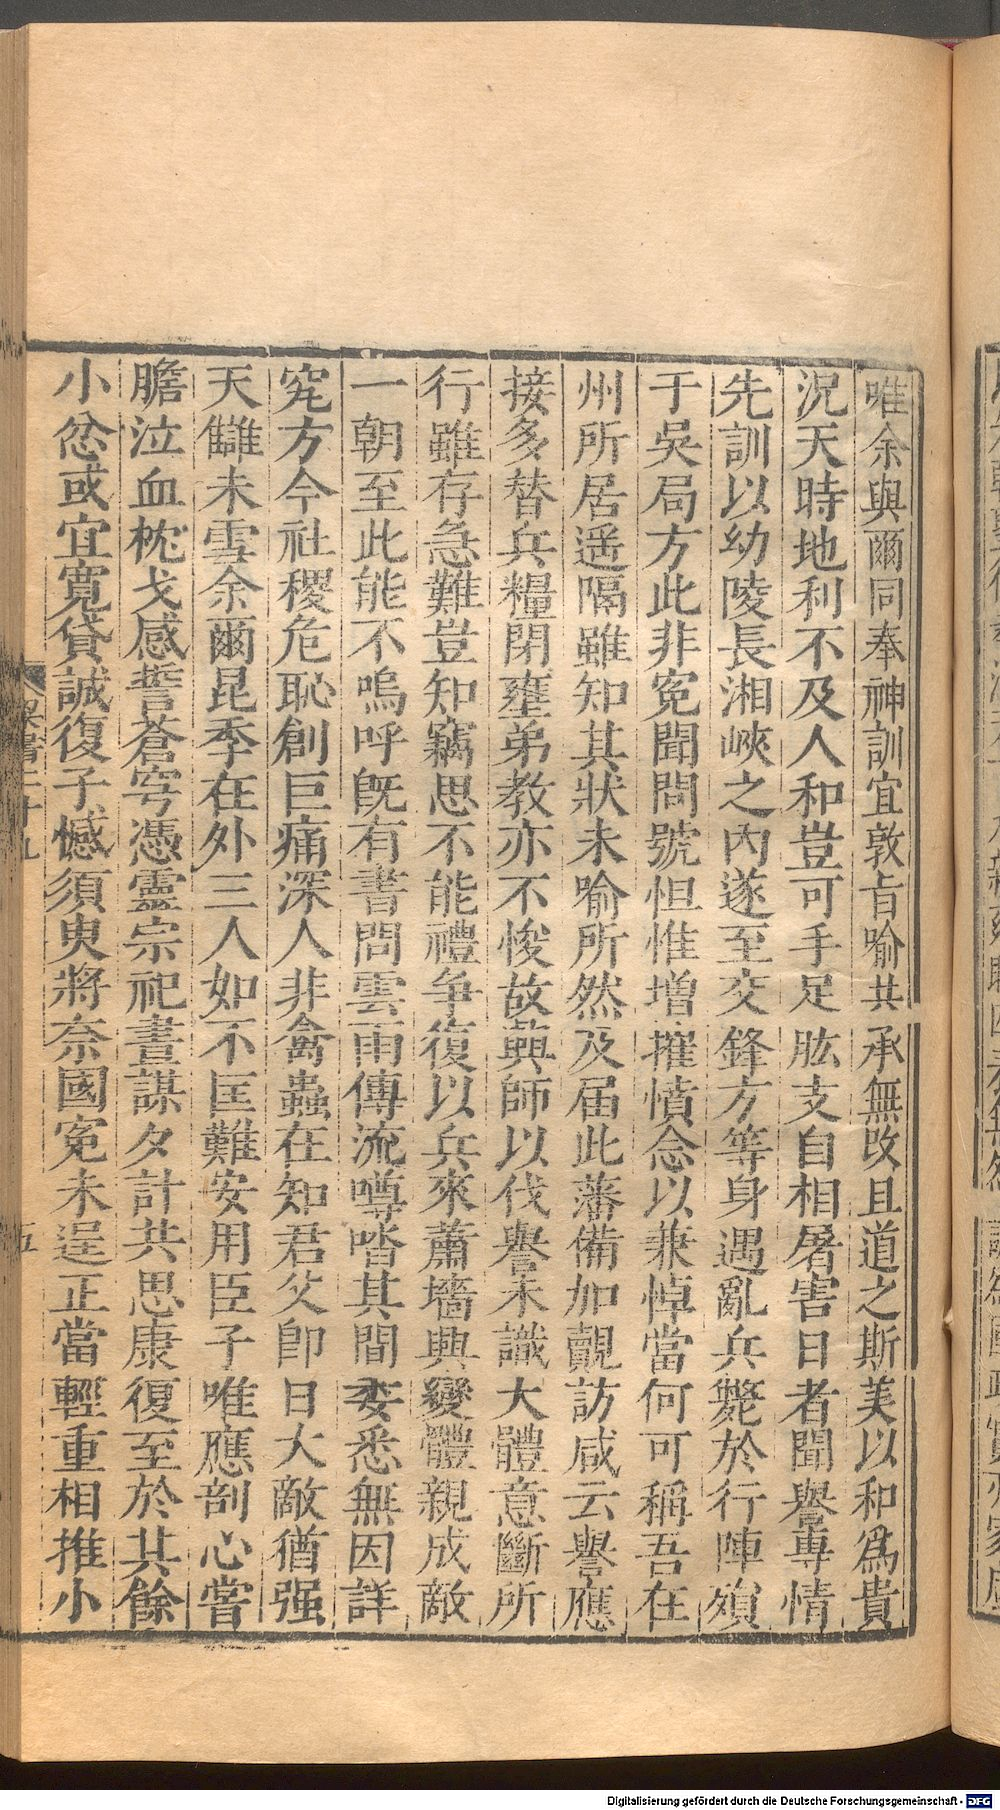 唯余與爾同奉神訓宜敦旨喻共承無改且道之斯美以和爲貴
况天時地利不及人和豈可手足肱支自相屠害日者聞譽專情
先訓以幼陵長湘峽之內遂至交鋒方等身遇亂兵斃於行陣殞
于吳局方此非寃聞問號怛惟增摧憤念以兼悼當何可稱吾在
州所居遥隔雖知其狀未喻所然及届此藩備加覿訪咸云譽應
接多替兵糧閉壅弟教亦不悛故興師以伐譽未識大體意斷所
行雖存急難豈知竊思不能禮争復以兵來蕭墻興變體親成敵
一朝至此能不嗚呼旣有書問雲雨傳流噂喈其間委悉無因詳
究方今社稷危恥創巨痛深人非禽蟲在知君父即日大敵猶强
天讎未雪余爾昆季在外三人如不匡難安用臣子唯應剖心嘗
膽泣血枕戈感誓蒼穹憑靈宗祀晝謀夕計共思康復至於其餘
小忿或宜寬貸誠復子憾須臾將奈國寃未逞正當輕重相推小
五
Digitalisierung gefördert durch die Deutsche Forschungsgemeinschaft - DFG